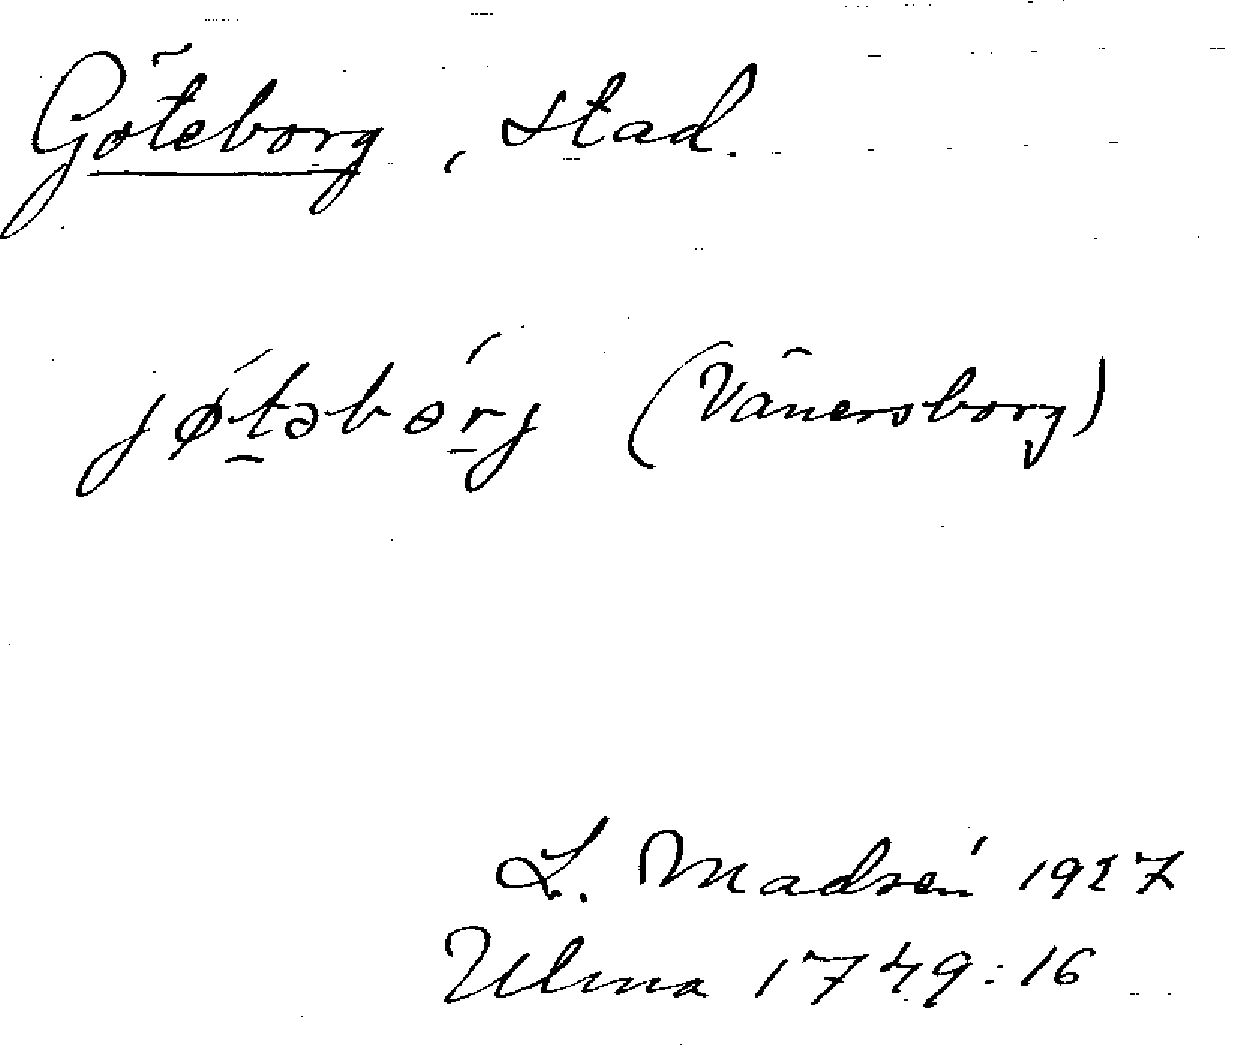 Göteborg, stad.
jǿtəbɵ́rj (Vänersborg)
L. Madsén 1927
Ulma 1749:16